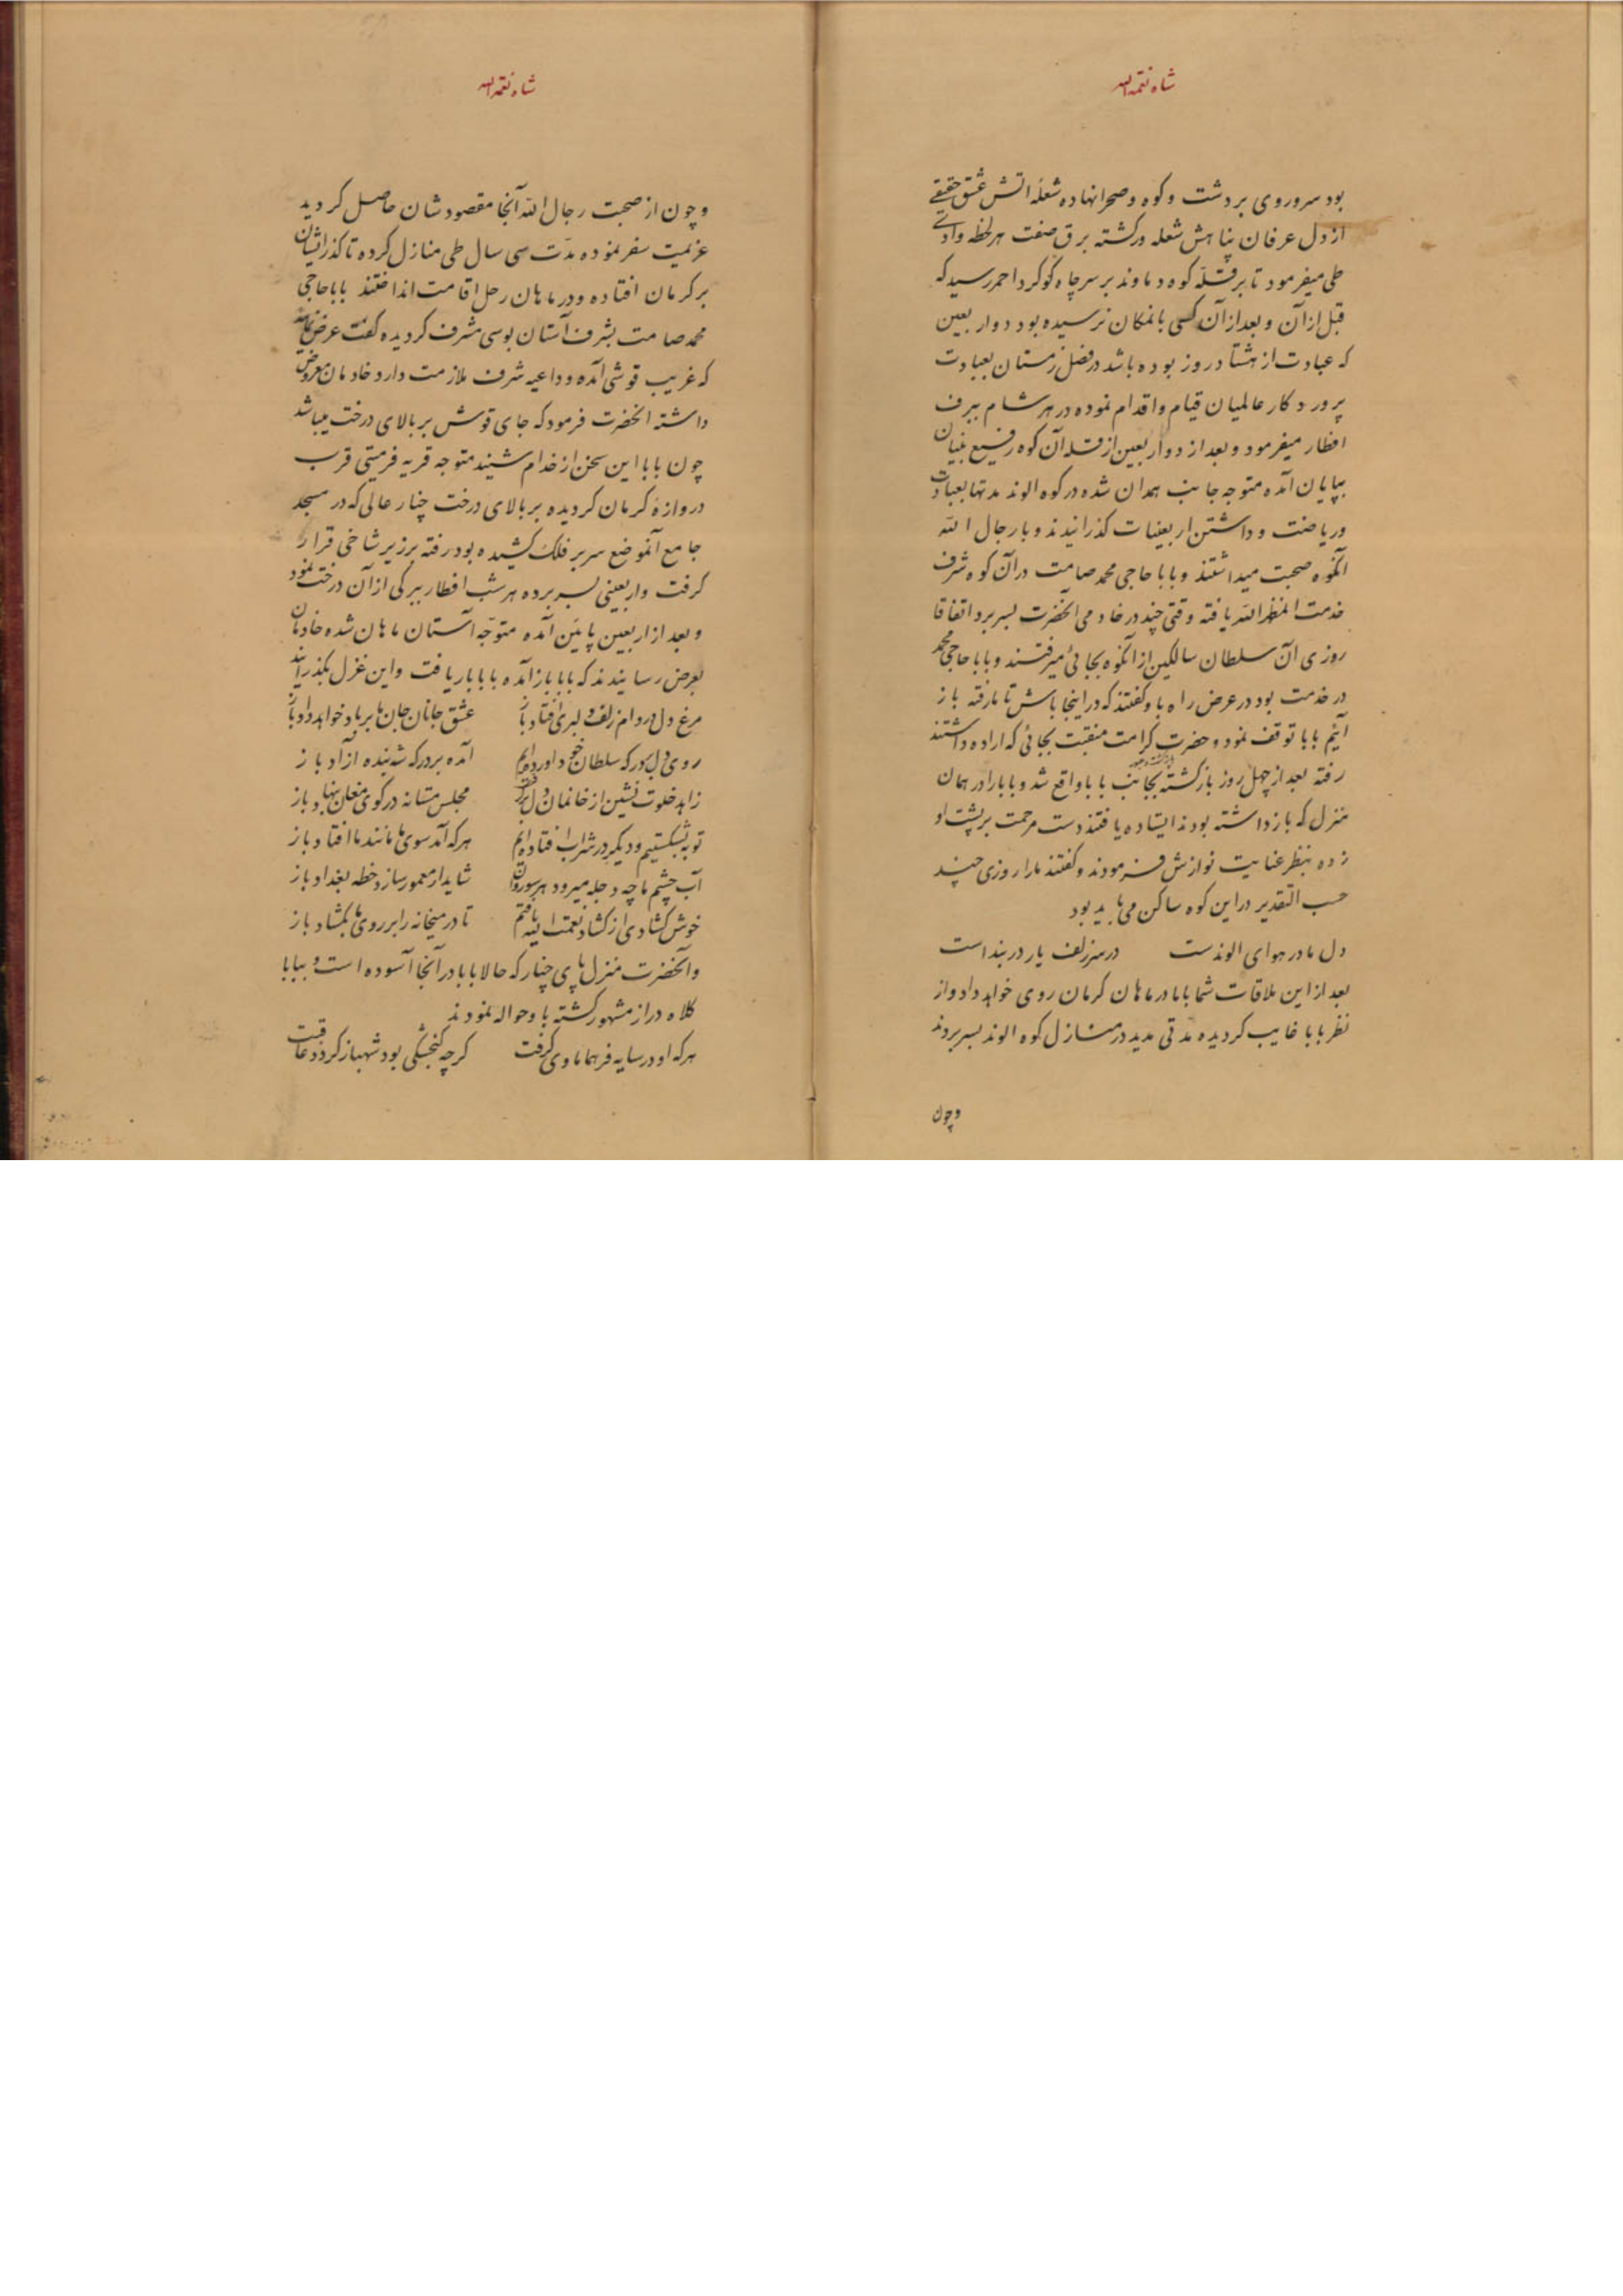 شاه نعمة الله
بود سر و روی بر دشت و کوه و صحرا نهاده شعلهٔ اتش عشق حقیقے
از دل عرفان پناهش شعله ور کشته برق صفت هر لحظه وادے
طی میفرمود تا بر قلهٔ کوه دماوند بر سر چاه کوکرد احمر رسید که
قبل از آن و بعد از آن کسی بانمکان نرسیده بود دو اربعین
که عبادت از هشتاد روز بوده باشد در فصل زمستان بعبادت
پروردکار عالمیان قیام و اقدام نموده در هر شام ببرف
افطار میفرمود و بعد از دو اربعین از قلهٔ آن کوه رفیع بنیان
بپایان آمده متوجه جانب همدان شده در کوه الوند مدتها بعبادت
و ریاضت و داشتن اربعینات کذرانیدند و با رجال الله
آنکوه صحبت میداشتند و بابا حاجی محمد صامت در آن کوه شرف
خدمت المظهر الله یافته وقتی چند در خادمی آنحضرت بسر برد اتفاقا
روزی آن سلطان سالکین از آنکوه بجائی میرفتند و بابا حاجی محمد
در خدمت بود در عرض راه باو کفتند که در اینجا باش تا ما رفته باز
آئیم بابا توقف نمود و حضرت کرامت منقبت بجائی که اراده داشتند
رفته بعد از چهل روز باز کشته بجانب بابا واقع شد و بابا را در همان
منزل که باز داشته بودند ایستاده یافتند دست مرحمت بر پشت او
زده بنظر عنایت نوازش فرمودند و کفتند ما را روزی چند
حسب التقدیر در این کوه ساکن می باید بود
دل ما در هوای الوندست در سر زلف یار در بند است
بعد از این ملاقات شما با ما در ماهان کرمان روی خواهد داد و از
نظر بابا غایب کردیده مدتی مدید در منازل کوه الوند بسر بردند
و چون
شاه نعمة الله
و چون از صحبت رجال الله آنجا مقصودشان حاصل کردید
عزیمت سفر نموده مدّت سی سال طی منازل کرده تا کذر ایشان
بر کرمان افتاده و در ماهان رحل اقامت انداختند بابا حاجی
محمد صامت بشرف آستان بوسی مشرف کردیده کفت عرض نمائید
که غریب قوشی آمده و داعیه شرف ملازمت دارد خادمان معروض
داشته انحضرت فرمود که جای قوش بر بالای درخت میباشد
چون بابا این سخن از خدام شنید متوجه قریه فرمیتی قرب
دروازهٔ کرمان کردیده بر بالای درخت چنار عالی که در مسجد
جامع آنموضع سر بر فلک کشیده بود رفته بر زبر شاخی قرار
کرفت و اربعینی بسر برده هر شب افطار ببرکی از آن درخت نمود
و بعد از اربعین پایین آمده متوجّه آستان ماهان شده خادمان
بعرض رسانیدند که بابا باز آمده بابا بار یافت و این غزل بکذرانید
مرغ دل در دام زلف دلبری افتاد باز عشق جانان جان ما بر باد خواهد داد باز
روی دل بر درکه سلطان خود آورده ایم آمده بر درکه شه بنده آزاد باز
زاهد خلوت نشین از خانمان دل برکرفت مجلس مستانه در کوی مغان بنهاد باز
توبه بشکستیم و دیکر در شراب افتاده ایم هر که آمد سوی ما مانند ما افتاد باز
آب چشم ما چه دجله میرود هر سو روان شاید ار معمور سازد خطه بغداد باز
خوش کشادی از کشاد نعمت الله یافتم تا در میخانه را بر روی ما بکشاد باز
و آنحضرت منزل پای چنار که حالا بابا در آنجا آسوده است و ببابا
کلاه دراز مشهور کشته باو حواله نمودند
هر که او در سایه فر هما ماوی کرفت کرچه کنجشکی بود شهباز کردد عاقبت